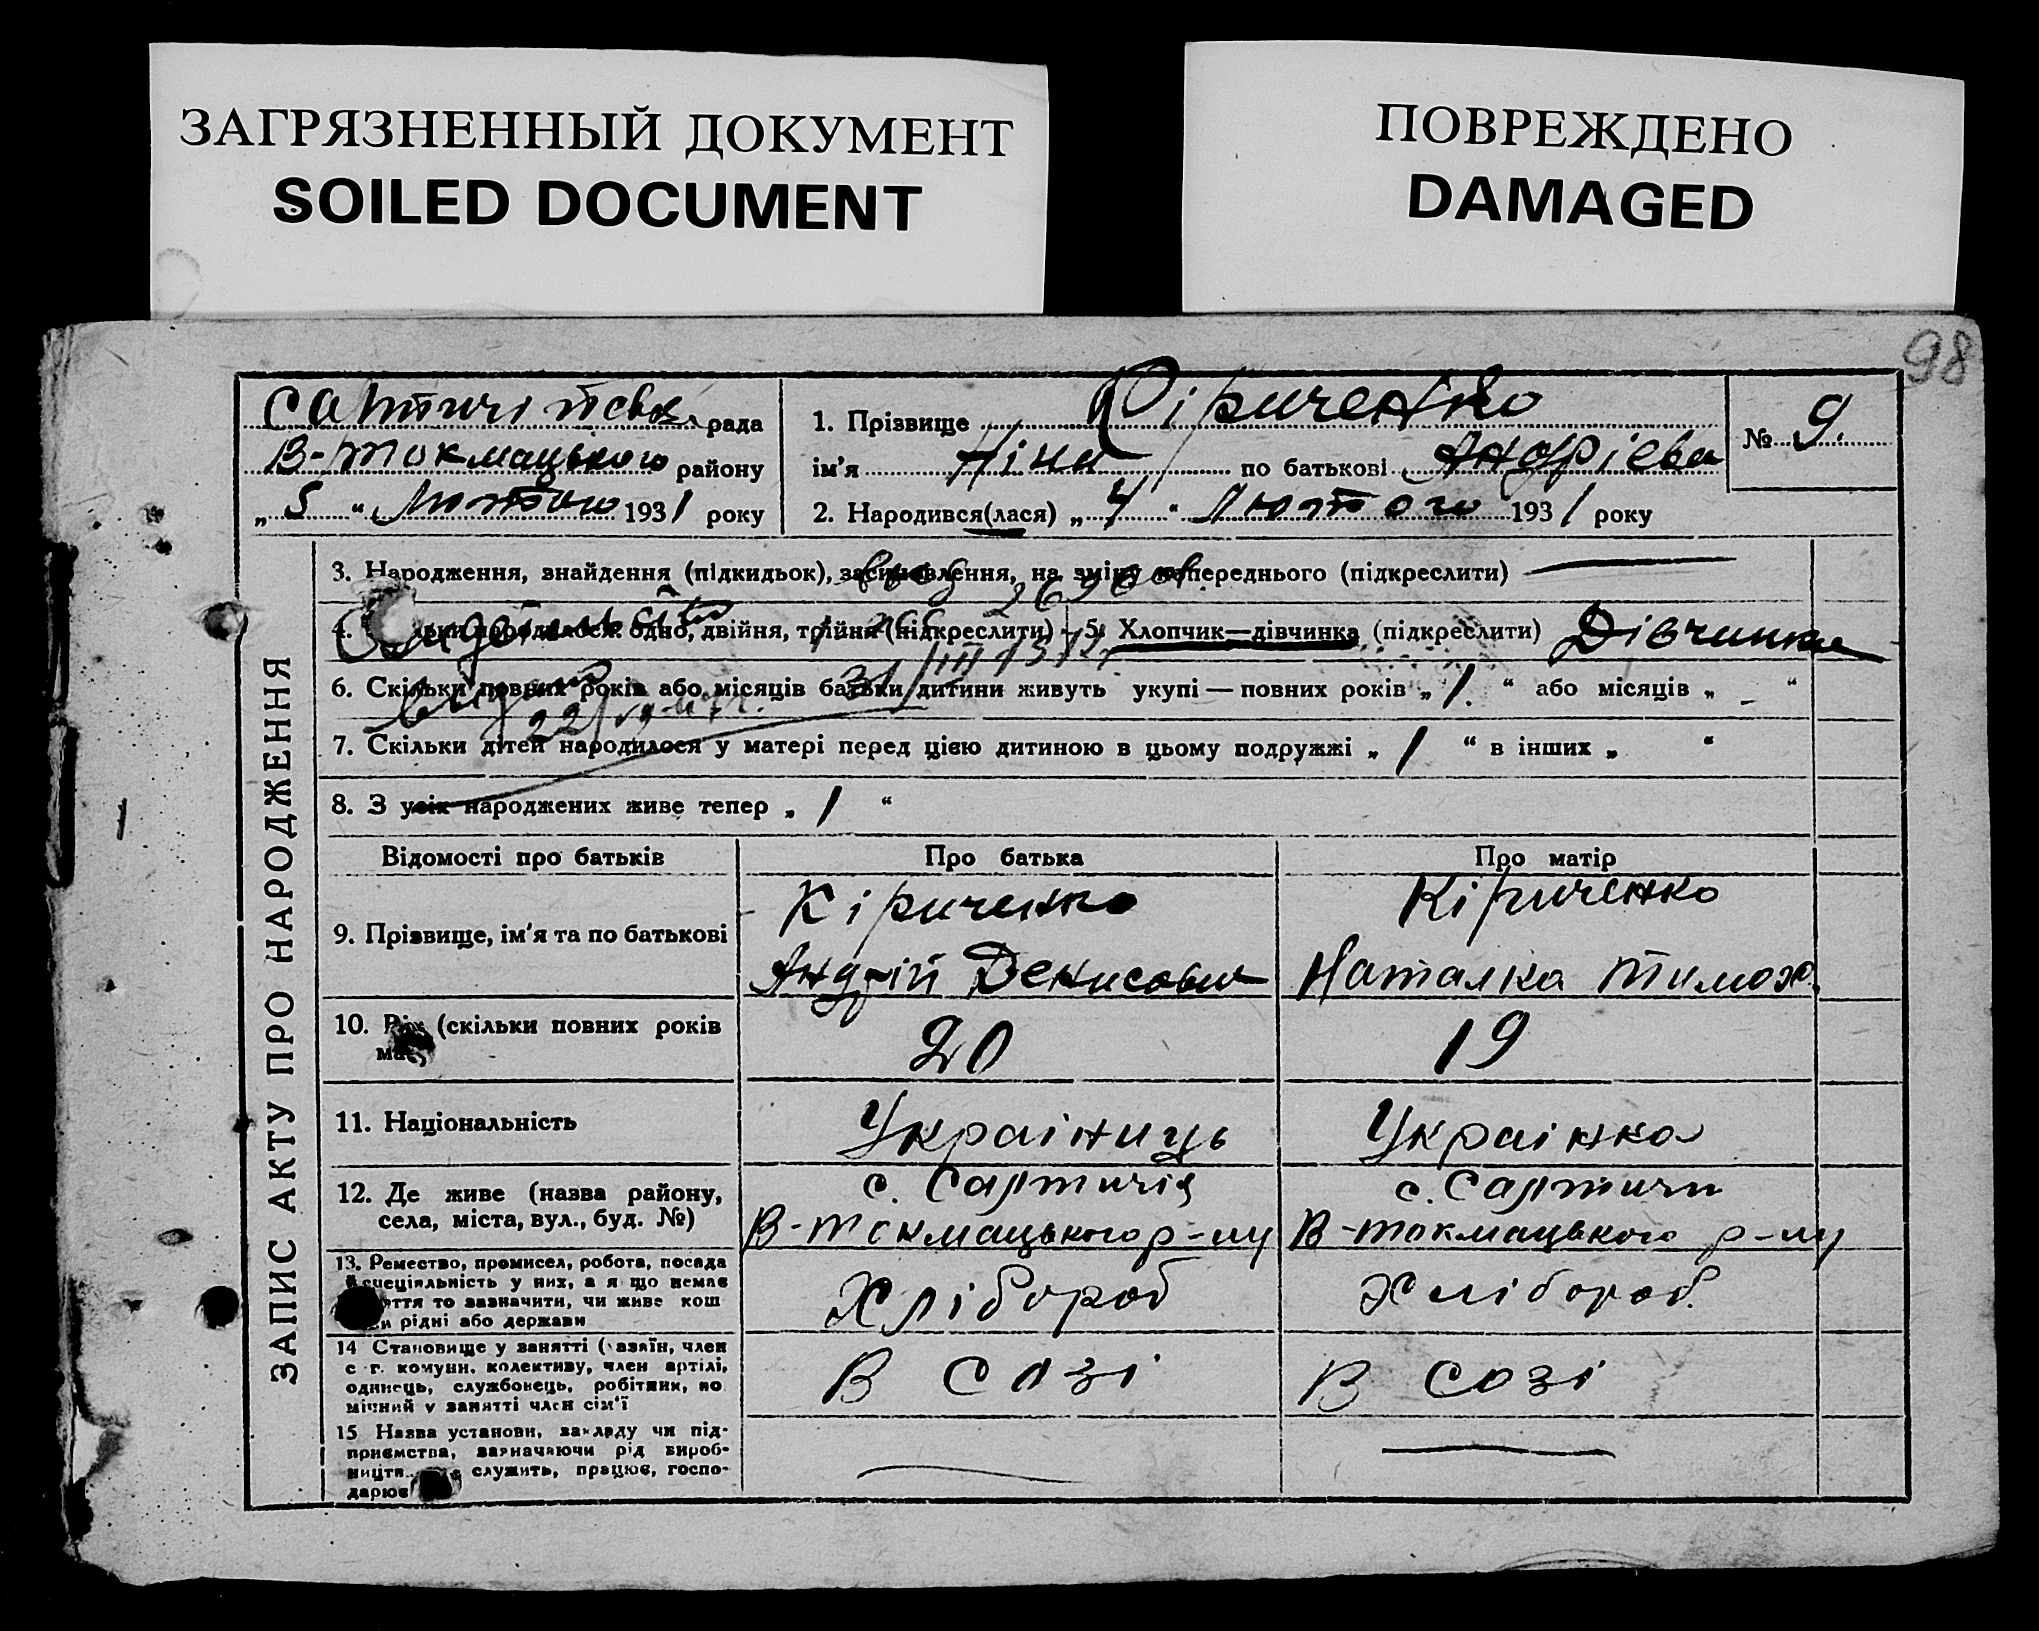 ЗАГРЯЗНЕННЫЙ ДОКУМЕНТ
SOILED DOCUMENT
ПОВРЕЖДЕНО
DAMAGED
98
рада
В-Токмацького району
„ 5 “ Лютого 1931 року
1. Прізвище Кіриченко
ім'я Ніна по батькові Андрієва
2. Народився(лася) „ 4 “ Лютого 1931 року
№ 9.
ЗАПИС АКТУ ПРО НАРОДЖЕННЯ
3. Народження, знайдення (підкидьок), засиновлення, на зміну попереднього (підкреслити)
народилося: одно, двійня, трійня (підкреслити)
5. Хлопчик—дівчинка (підкреслити) Дівчинка
6. Скільки повних років або місяців батьки дитини живуть укупі — повних років „ 1. “ або місяців „ - “
7. Скільки дітей народилося у матері перед цією дитиною в цьому подружжі „ 1 “ в інших „ “
8. З усіх народжених живе тепер „ 1 “
Відомості про батьків
Про батька
Про матір
9. Прізвище, ім'я та по батькові
Кіриченко
Андрій Денисович
Кіриченко
Наталка Тимох.
10. Вік (скільки повних років
має)
20
19
11. Національність
Українць
Українка
12. Де живе (назва району,
села, міста, вул., буд. №)
с. Салтичія
В-Токмацького р-ну
с. Салтичи
В-Токмацького р-ну
13. Ремество, промисел, робота, посада
й спеціяльність у них, а я що немає
ття то зазначити, чи живе кош
и рідні або держави
Хлібороб
Хлібороб.
14 Становище у занятті (хазяїн, член
с г. комуни, колективу, член артілі,
одинець, службовець, робітник, по
мічний у занятті член сім'ї
В созі
В созі
15 Назва установи, закладу чи під-
приємства, зазначаючи рід вироб-
ництв служить, працює, госпо-
дарює